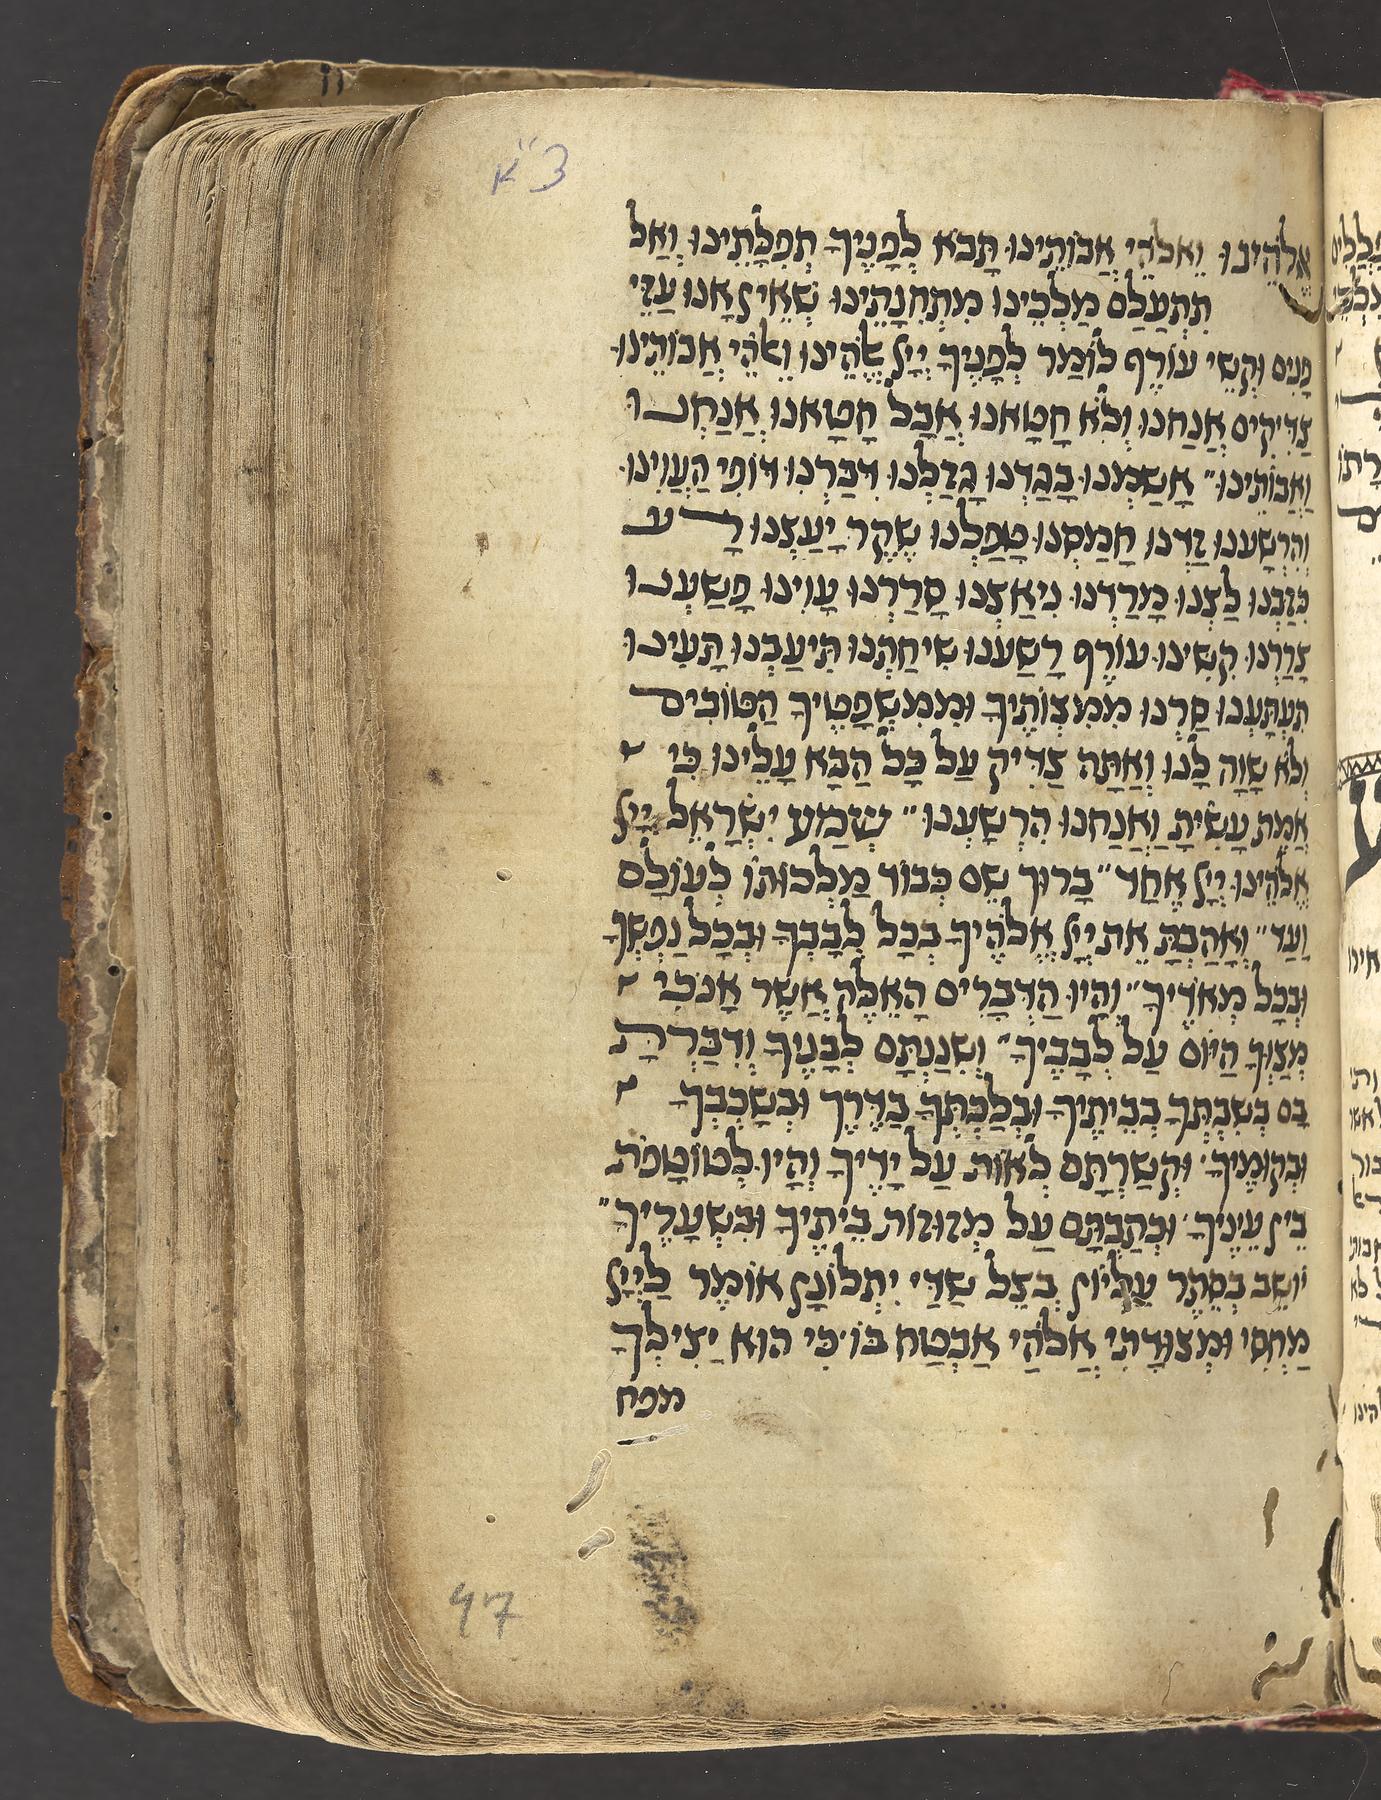 צ"א
אֱלֹהֵינוּ וֵאלֹהֵי אֲבוֹתֵינוּ תָּבֹא לְפָנֶיךָ תְפִלָּתֵינוּ וְאַל
תִּתְעַלַּם מַלְכֵּינוּ מִתְּחִנָּתֵינוּ שֶׁאֵין אָנוּ עַזֵּי
פָנִים וּקְשֵׁי עוֹרֶף לוֹמַר לְפָנֶיךָ יְיָ אֱלֹהֵינוּ וֵאלֹהֵי אֲבוֹתֵינוּ
צַדִּיקִים אֲנַחְנוּ וְלֹא חָטָאנוּ אֲבָל חָטָאנוּ אֲנַחְנוּ
וַאֲבוֹתֵינוּ" אָשַׁמְנוּ בָּגַדְנוּ גָּזַלְנוּ דִּבַּרְנוּ דוֹפִי הֶעֱוִינוּ
וְהִרְשָׁעְנוּ זַדְנוּ חָמַסְנוּ טָפַלְנוּ שֶׁקֶר יָעַצְנוּ רָע
כִּזַּבְנוּ לַצְנוּ מָרַדְנוּ נִיאַצְנוּ סָרַרְנוּ עָוִינוּ פָּשַׁעְנוּ
צָרַרְנוּ קִשִּׁינוּ עוֹרֶף רָשַׁעְנוּ שִׁיחַתְנוּ תִּיעַבְנוּ תָּעִינוּ
תִעְתָּעְנוּ סַרְנוּ מִמִּצְוֹתֶיךָ וּמִמִּשְׁפָּטֶיךָ הַטּוֹבִים
וְלֹא שָׁוָה לָנוּ וְאַתָּה צַדִּיק עַל כָּל הַבָּא עָלֵינוּ כִּי
אֱמֶת עָשִׂיתָ וַאֲנַחְנוּ הִרְשָׁעְנוּ" שְׁמַע יִשְׂרָאֵל יְיָ
אֱלֹהֵינוּ יְיָ אֶחַד" בָּרוּךְ שֵׁם כְּבוֹד מַלְכוּתוֹ לְעוֹלָם
וָעֶד" וְאָהַבְתָּ אֵת יְיָ אֱלֹהֶיךָ בְּכָל לְבָבְךָ וּבְכָל נַפְשְׁךָ
וּבְכָל מְאֹדֶיךָ" וְהָיוּ הַדְּבָרִים הָאֵלֶּה אֲשֶׁר אָנֹכִי
מְצַוְּךָ הַיּוֹם עַל לְבָבֶיךָ" וְשִׁנַּנְתָּם לְבָנֶיךָ וְדִבַּרְתָּ
בָּם בְּשִׁבְתְּךָ בְּבֵיתֶיךָ וּבְלַכְתְּךָ בַדֶּרֶךְ וּבְשָׁכְבְּךָ
וּבְקוּמֶיךָ' וּקְשַׁרְתָּם לְאוֹת עַל יָדֶיךָ וְהָיוּ לְטוֹטָפֹת
בֵּין עֵינֶיךָ' וּכְתַבְתָּם עַל מְזוּזוֹת בֵּיתֶיךָ וּבִשְׁעָרֶיךָ"
יוֹשֵׁב בְּסֵתֶר עֶלְיוֹן בְּצֵל שַׁדַּי יִתְלוֹנָן אוֹמֶר לַיְיָ
מַחְסִי וּמְצוּדָתִי אֱלֹהַי אֶבְטַח בּוֹ' כִּי הוּא יַצִּילְךָ
מפח
97